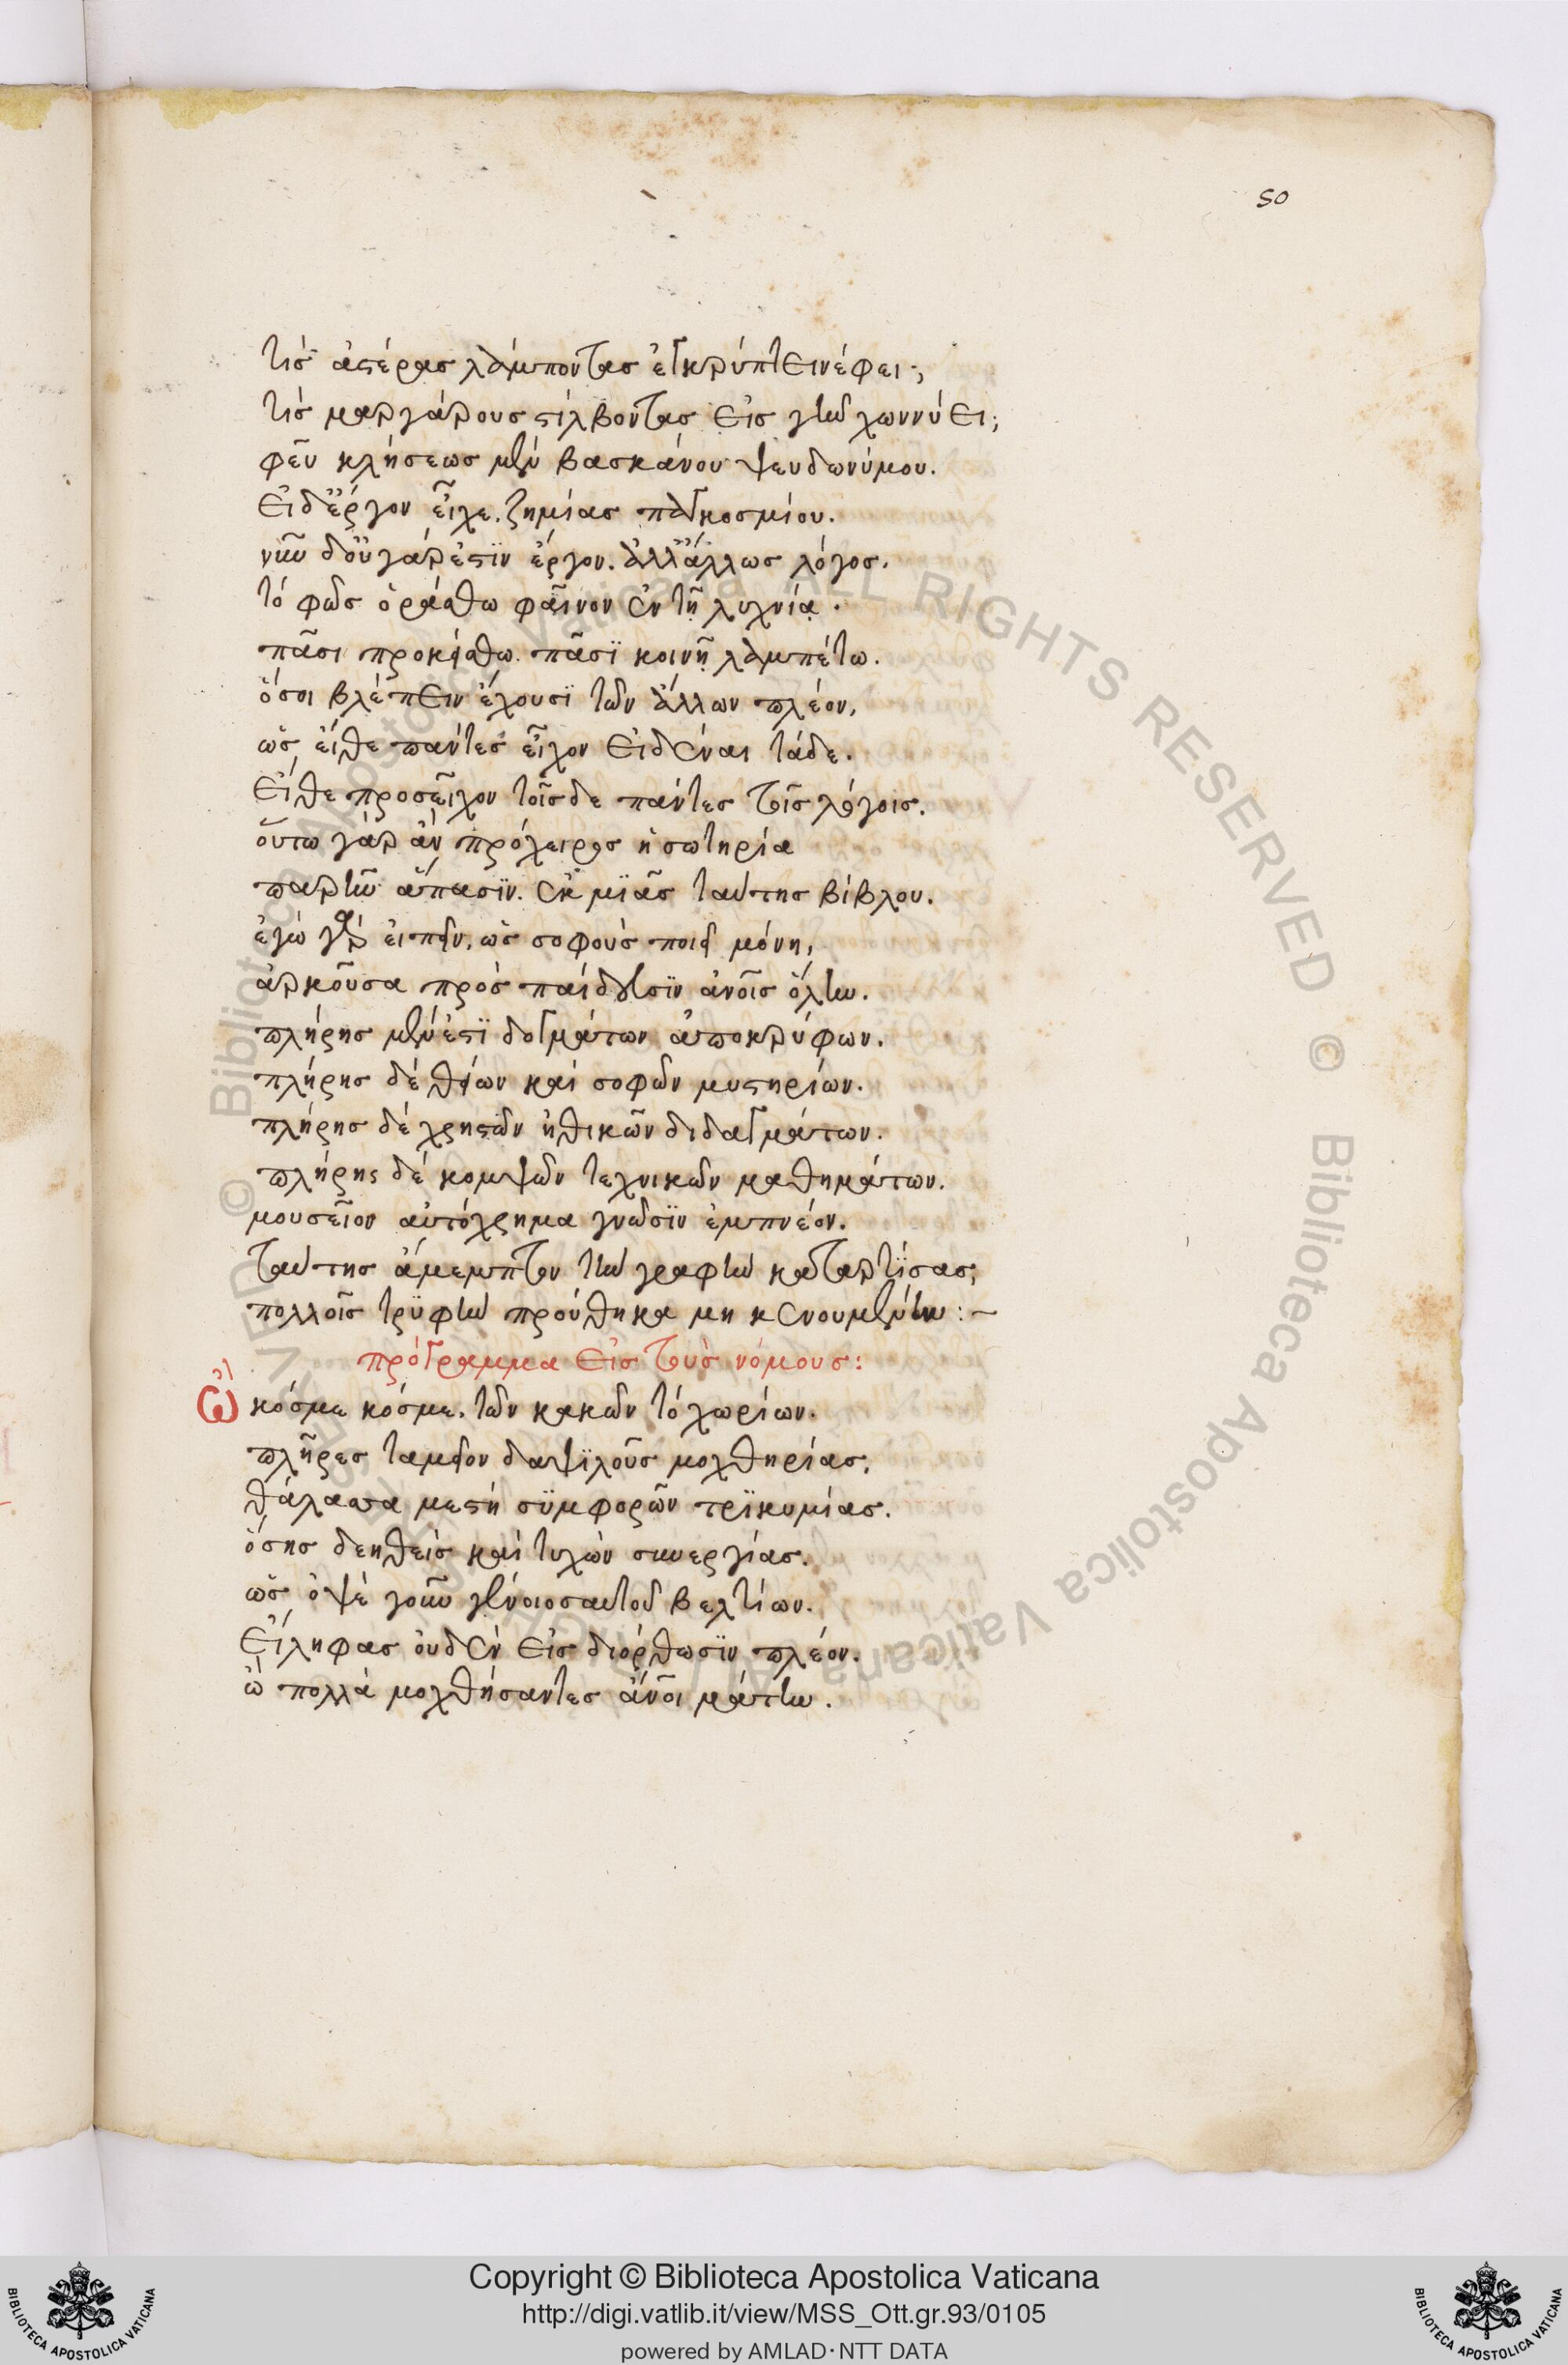 50
τίς ἀστέρας λάμποντας ἐγκρύπτει νέφει·;
τίς μαργάρους στίλβοντας εἰς γῆν χωννύει;
φεῦ κλήσεως μὲν βασκάνου ψευδωνύμου.
εἰ δ' ἔργον εἶχε. ζημίας παγκοσμίου.
νῦν δ' οὐ γάρ ἐστὶν ἔργον. ἀλλ' ἄλλως λόγος.
τὸ φῶς ὁράσθω φαῖνον ἐν τῇ λυχνίᾳ.
πᾶσι προκείσθω. πᾶσϊ κοινῇ λαμπέτω.
ὅσοι βλέπειν ἔχουσϊ τῶν ἄλλων πλέον,
ὡς εἴθε πάντες εἶχον εἰδέναι τάδε.
εἴθε προσεῖχον τοῖσδε πάντες τοῖς λόγοις.
οὕτω γὰρ ἂν πρόχειρος ἡ σωτηρία
παρῆν ἅπασϊν. ἐκ μϊᾶς ταύτης βίβλου.
ἐγὼ γὰρ εἰπεῖν, ὡς σοφοὺς ποιεῖ μόνη,
ἀρκοῦσα πρὸς παίδευσϊν ἀνοις ὅλην.
πλήρης μέν ἐστϊ δογμάτων ἀποκρύφων.
πλήρης δὲ θείων καὶ σοφῶν μυστηρίων.
πλήρης δὲ χρηστῶν ἠθικῶν διδαγμάτων.
πλήρης δὲ κομψῶν τεχνικῶν μαθημάτων.
μουσεῖον αὐτόχρημα γνῶσϊν ἐμπνέον.
ταύτης ἄμεμπτον τὴν γραφὴν καταρτΐσας,
πολλοῖς τρϋφὴν προύθηκα μη κενουμένην:~
πρόγραμμα εἰς τοὺς νόμους:
Ὦ κόσμε κόσμε. τῶν κακῶν τὸ χωρίων.
πλῆρες ταμεῖον δαψϊλοῦς μοχθηρίας,
θάλασσα μεστὴ σϋμφορῶν τρϊκυμίας.
ὅσης δεηθεὶς καὶ τυχὼν συνεργίας.
ὡς ὀψὲ γοῦν γένοιο σαυτοῦ βελτίων.
εἴληφας οὐδὲν εἰς διόρθωσϊν πλέον.
ὦ πολλὰ μοχθήσαντες ἄνοι μάτην.
Copyright © Biblioteca Apostolica Vaticana
http://digi.vatlib.it/view/MSS_Ott.gr.93/0105
powered by AMLAD·NTT DATA